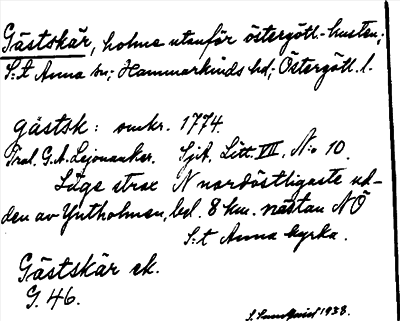 Gästskär, holme utanför östergötl.-kusten;
S:t Anna sn; Hammarkinds hd; Östergötl. l.
gästsk: omkr. 1774.
Tral. G.A. Lejonanker. SjA, Litt. VII, N:o 10.
Låge strax N nordöstligaste ud-
den av Yxtholmen, bel. 8 km. nästan NÖ
S:t Anna kyrka.
Gästskär ek.
G. 46.
1938.